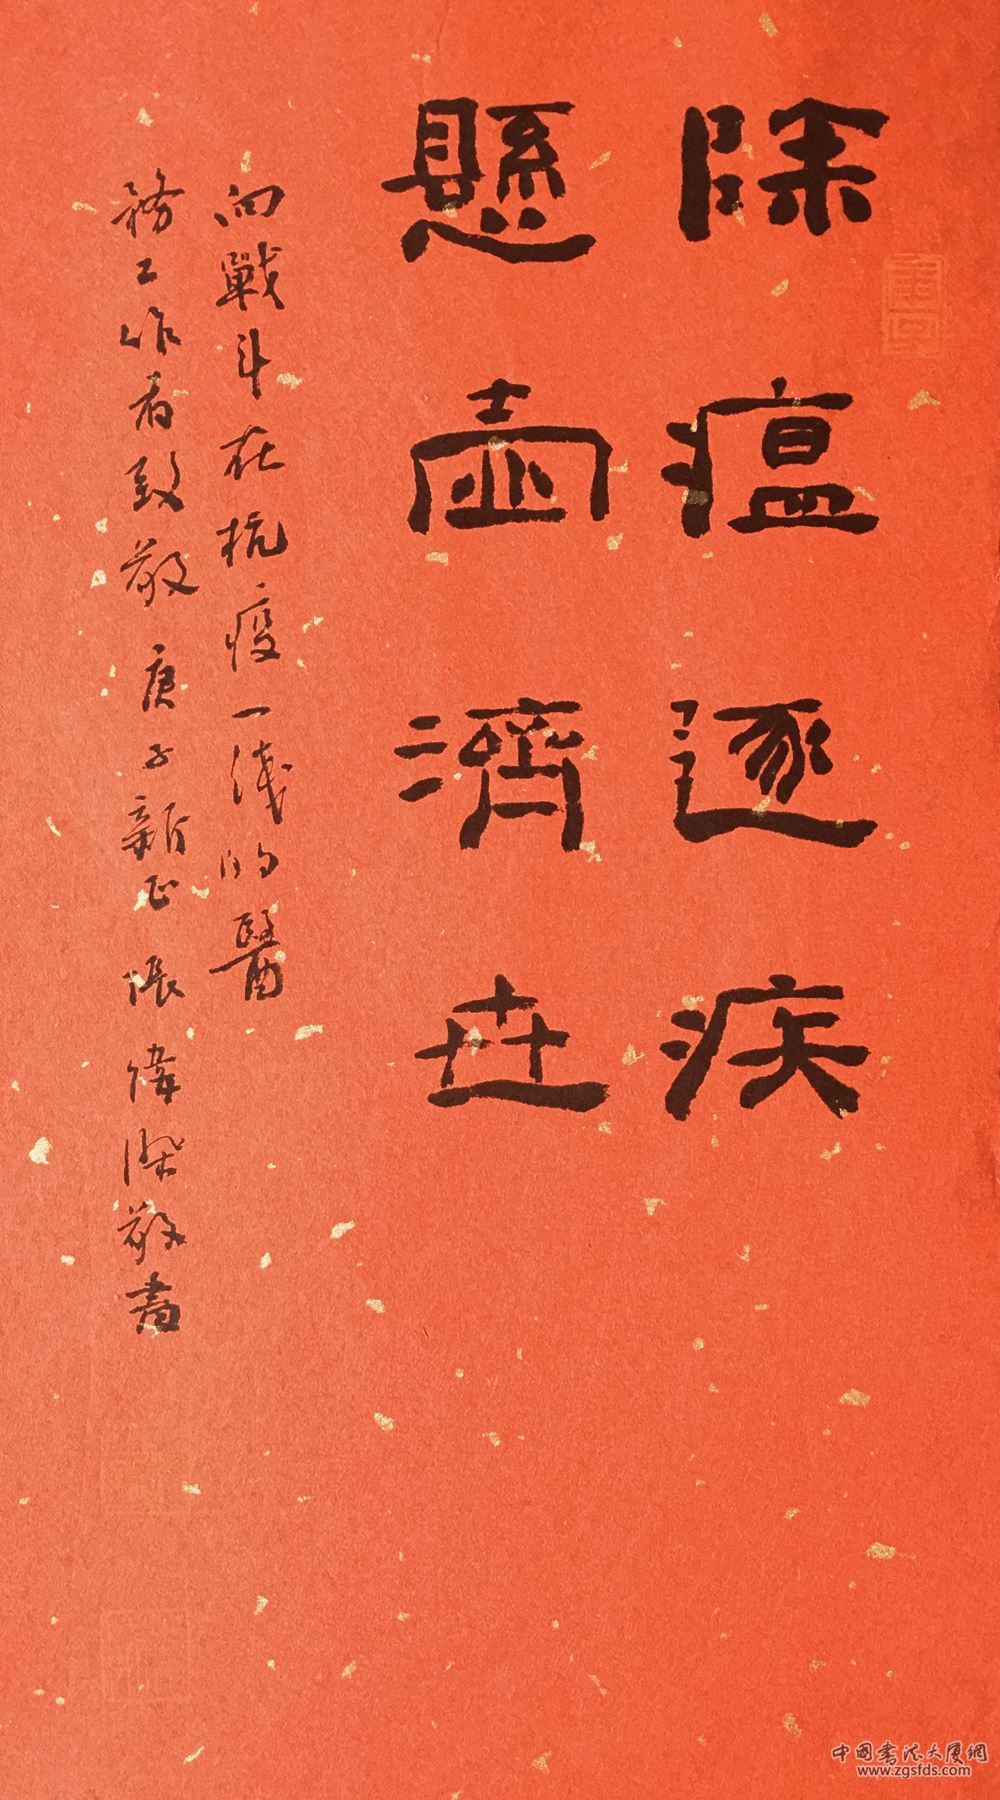 除瘟逐疾
懸壺濟世
向戰斗在抗疫一线的醫
務工作者致敬庚子新正張偉深敬書
中国书法大厦網
www.zgsfds.com